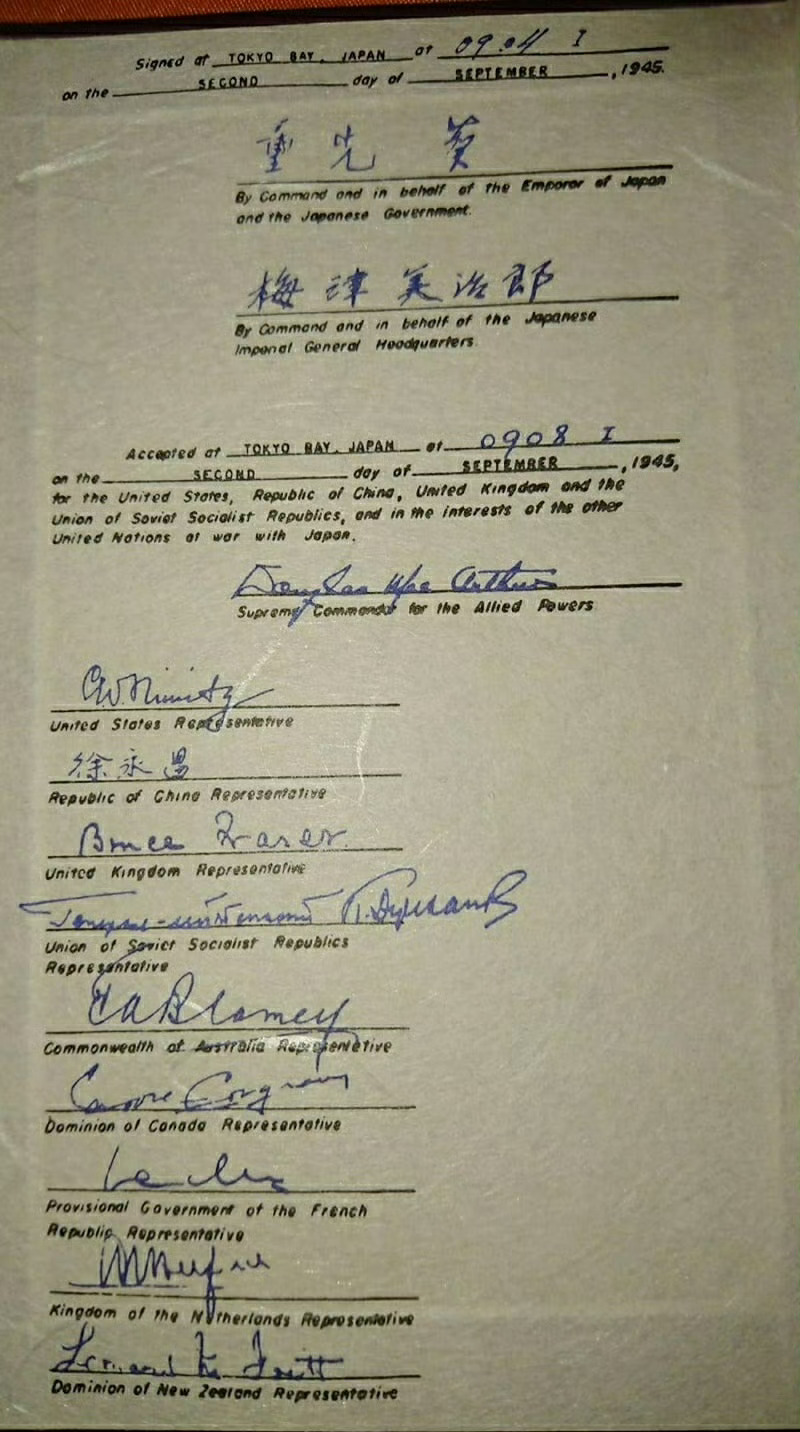 Signed at TOKYO BAY, JAPAN at 09.04 I
on the SECOND day of SEPTEMBER, 1945.
重光 葵
By Command and in behalf of the Emperor of Japan
and the Japanese Government.
梅津美治郎
By Command and in behalf of the Japanese
Imperial General Headquarters.
Accepted at TOKYO BAY, JAPAN at 0908 I
on the SECOND day of SEPTEMBER, 1945,
for the United States, Republic of China, United Kingdom and the
Union of Soviet Socialist Republics, and in the interests of the other
United Nations at war with Japan.
Douglas MacArthur
Supreme Commander for the Allied Powers
C.W. Nimitz
United States Representative
徐永昌
Republic of China Representative
Bruce Fraser
United Kingdom Representative
Union of Soviet Socialist Republics
Representative
T.A. Blamey
Commonwealth of Australia Representative
Dominion of Canada Representative
Provisional Government of the French
Republic Representative
Kingdom of the Netherlands Representative
Dominion of New Zealand Representative